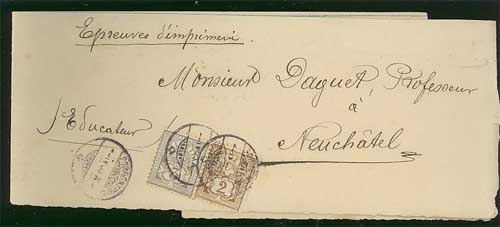 Epreuves d'imprimerie.
Monsieur Daguet, Professeur
à
l'Educateur
Neuchâtel
2